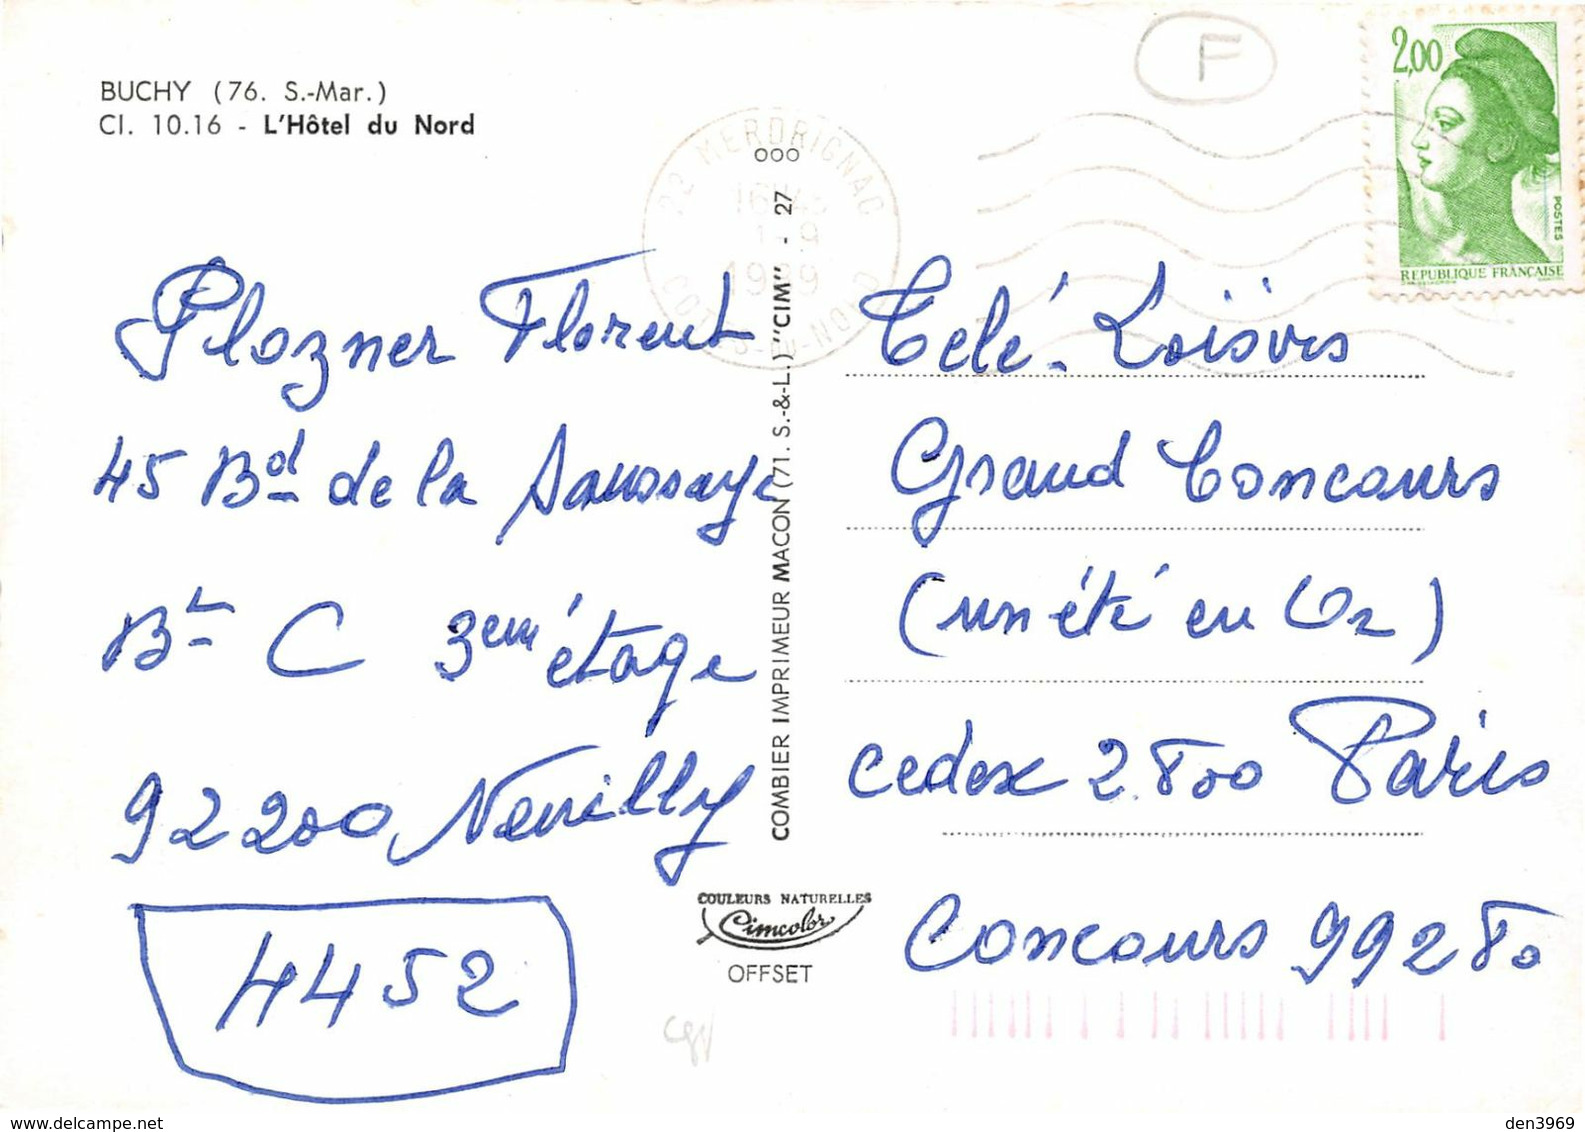 BUCHY (76. S.-Mar.)
Cl. 10.16 - L'Hôtel du Nord
F
2,00
POSTES
REPUBLIQUE FRANÇAISE
22 MERDRIGNAC
16H45
1-9
1989
COTES-DU-NORD
Plozner Florent
45 Bd de la Saussaye
Bt C 3em étage
92200 Neuilly
4452
COMBIER IMPRIMEUR MACON (71. S.-&-L.) "CIM" - 27
ooo
Télé-Loisirs
Grand Concours
(un été en Or)
cedex 2.800 Paris
Concours 99280
COULEURS NATURELLES
Cimcolor
OFFSET
www.delcampe.net
den3969